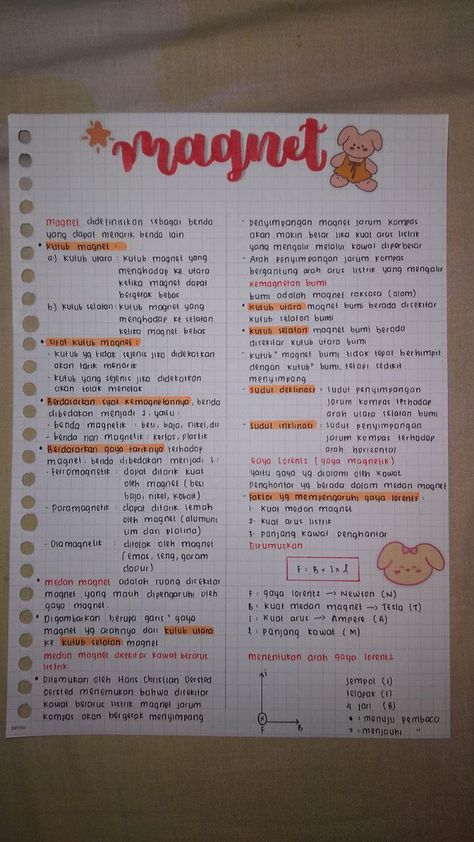 magnet
magnet didefinisikan sebagai benda
yang dapat menarik benda lain
• kutub magnet :
a.) kutub utara : kutub magnet yang
menghadap ke utara
ketika magnet dapat
bergerak bebas
b.) kutub selatan : kutub magnet yang
menghadap ke selatan
ketika magnet bebas
• sifat kutub magnet :
- kutub yg tidak sejenis jika didekatkan
akan tarik menarik
- kutub yang sejenis jika didekatkan
akan tolak menolak
• Berdasarkan sifat kemagnetannya, benda
dibedakan menjadi 2, yaitu :
- benda magnetik : besi, baja, nikel, dll
- benda non magnetik : kertas, plastik
• Berdasarkan gaya tariknya terhadap
magnet. benda dibedakan menjadi 3 :
- Ferromagnetik : dapat ditarik kuat
oleh magnet (besi
baja, nikel, kobalt)
- Paramagnetik : dapat ditarik lemah
oleh magnet (alumuni
um dan platina)
- Diamagnetik : ditolak oleh magnet
(emas, seng, garam
dapur)
• medan magnet adalah ruang disekitar
magnet yang masih dipengaruhi oleh
gaya magnet.
• Digambarkan berupa garis² gaya
magnet yg arahnya dari kutub utara
ke kutub selatan magnet
medan magnet disekitar kawat berarus
listrik
• Ditemukan oleh Hans Christian Oersted
Oersted menemukan bahwa disekitar
kawat berarus listrik magnet jarum
kompas akan bergerak menyimpang
- penyimpangan magnet jarum kompas
akan makin besar jika kuat arus listrik
yang mengalir melalui kawat diperbesar
- Arah penyimpangan jarum kompas
bergantung arah arus listrik yang mengalir
kemagnetan bumi
bumi adalah magnet raksasa (alam)
• kutub utara magnet bumi berada disekitar
kutub selatan bumi
• kutub selatan magnet bumi berada
disekitar kutub utara bumi
- kutub² magnet bumi tidak tepat berhimpit
dengan kutub² bumi, tetapi sedikit
menyimpang
- sudut deklinasi : sudut penyimpangan
jarum kompas terhadap
arah utara selatan bumi
- sudut inklinasi : sudut penyimpangan
jarum kompas terhadap
arah horizontal
Gaya Lorentz (gaya magnetik)
yaitu gaya yg dialami oleh kawat
penghantar yg berada dalam medan magnet
• Faktor yg mempengaruhi gaya lorentz :
1. kuat medan magnet
2. kuat arus listrik
3. panjang kawat penghantar
Dirumuskan
F = B × I × l
F : gaya lorentz → Newton (N)
B : kuat medan magnet → Tesla (T)
I : kuat arus → Ampere (A)
l : panjang kawat (M)
menentukan arah gaya lorentz
I
F
B
jempol (I)
telapak (F)
4 jari (B)
• = menuju pembaca
× = menjauhi "